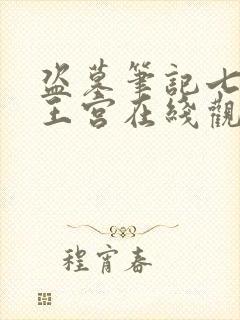 盗墓筆記七
王宮在綫觀
程宵春